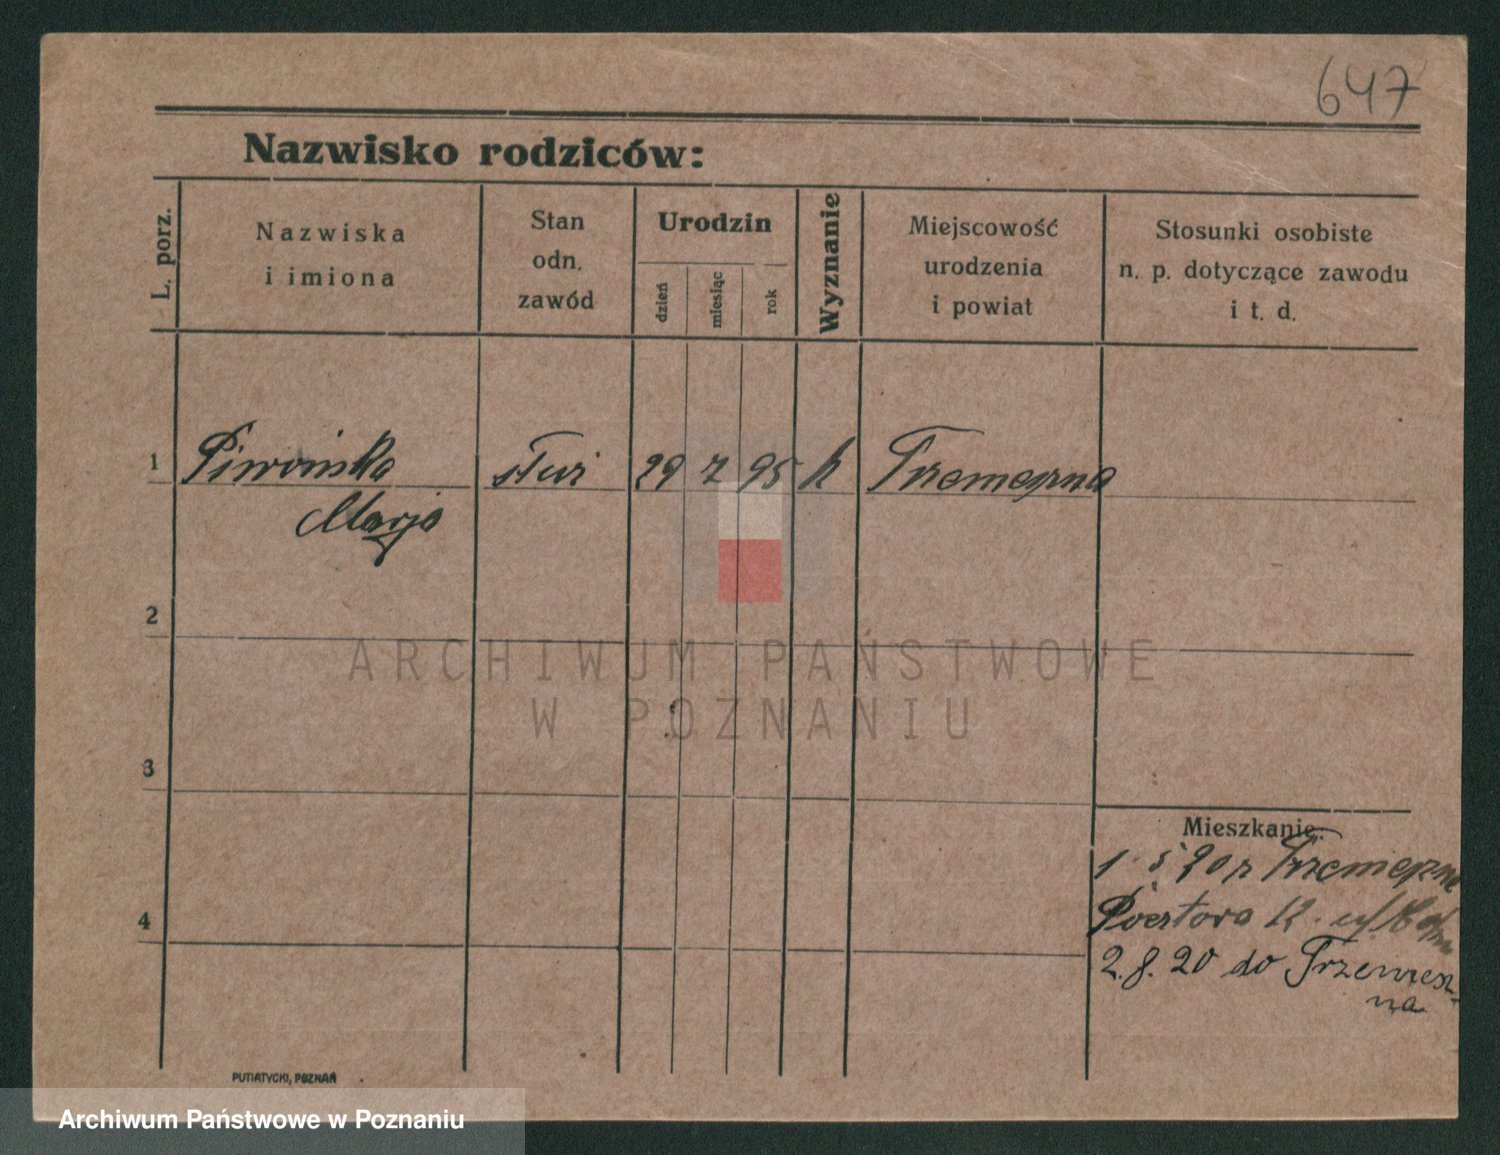 647
Nazwisko rodziców:
L. porz.
Nazwiska
i imiona
Stan
odn.
zawód
Urodzin
dzień
miesiąc
rok
Wyznanie
Miejscowość
urodzenia
i powiat
Stosunki osobiste
n. p. dotyczące zawodu
i t. d.
1 Piwońska 29 7 95 k
Marja
2
ARCHIWUM PAŃSTWOWE
W POZNANIU
3
Mieszkanie:
1 5 20
4 12
2.8.20 do Trzemesz-
na
PUTIATYCKI, POZNAŃ
Archiwum Państwowe w Poznaniu